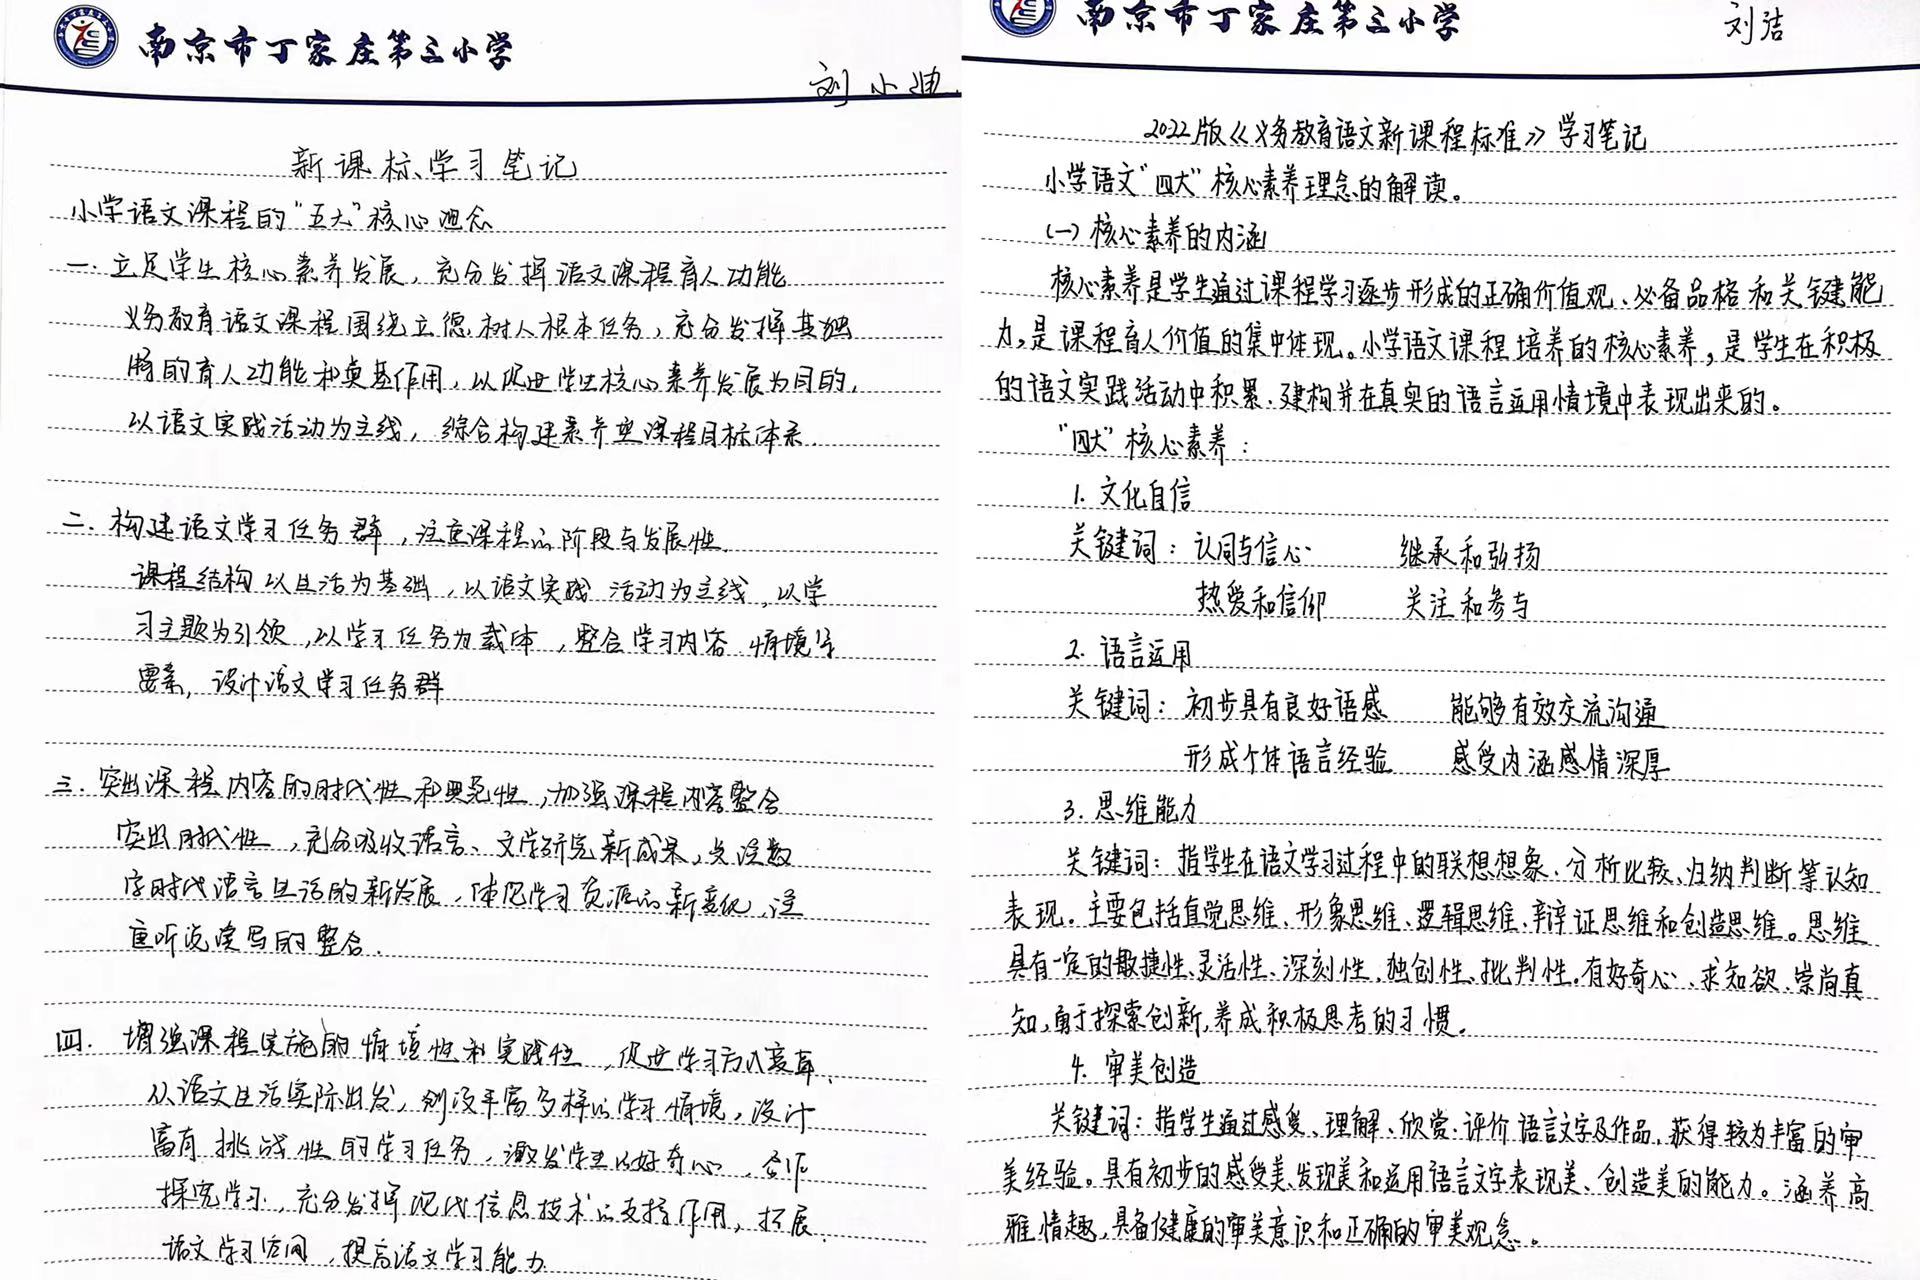 南京市丁家庄第三小学
刘小迪
新课标学习笔记
小学语文课程的"五大"核心理念
一.立足学生核心素养发展，充分发挥语文课程育人功能
义务教育语文课程围绕立德树人根本任务，充分发挥其独
特的育人功能和奠基作用，以促进学生核心素养发展为目的，
以语文实践活动为主线，综合构建素养型课程目标体系.
二.构建语文学习任务群，注重课程的阶段与发展性.
课程结构以生活为基础，以语文实践活动为主线，以学
习主题为引领，以学习任务为载体，整合学习内容 情境等
要素，设计语文学习任务群
三.突出课程内容的时代性和典范性，加强课程内容整合
突出时代性，充分吸收语言、文学研究新成果，关注数
字时代语言生活的新发展，体现学习资源的新变化，注
重听说读写的整合.
四.增强课程实施的情境性和实践性，促进学习方式变革.
从语文生活实际出发，创设丰富多样的学习情境，设计
富有挑战性的学习任务，激发学生的好奇心，合作
探究学习，充分发挥现代信息技术的支持作用，拓展
语文学习空间，提高语文学习能力
南京市丁家庄第三小学
刘洁
2022版《义务教育语文新课程标准》学习笔记
小学语文"四大"核心素养理念的解读。
(一)核心素养的内涵
核心素养是学生通过课程学习逐步形成的正确价值观、必备品格和关键能
力，是课程育人价值的集中体现。小学语文课程培养的核心素养，是学生在积极
的语文实践活动中积累、建构并在真实的语言运用情境中表现出来的。
"四大"核心素养：
1.文化自信
关键词：认同与信心 继承和弘扬
热爱和信仰 关注和参与
2.语言运用
关键词：初步具有良好语感 能够有效交流沟通
形成个体语言经验 感受内涵感情深厚
3.思维能力
关键词：指学生在语文学习过程中的联想想象、分析比较、归纳判断等认知
表现。主要包括直觉思维、形象思维、逻辑思维、辩证思维和创造思维。思维
具有一定的敏捷性、灵活性、深刻性、独创性、批判性。有好奇心、求知欲、崇尚真
知，勇于探索创新，养成积极思考的习惯。
4.审美创造
关键词：指学生通过感受、理解、欣赏、评价语言文字及作品，获得较为丰富的审
美经验。具有初步的感受美、发现美和运用语言文字表现美、创造美的能力。涵养高
雅情趣，具备健康的审美意识和正确的审美观念。